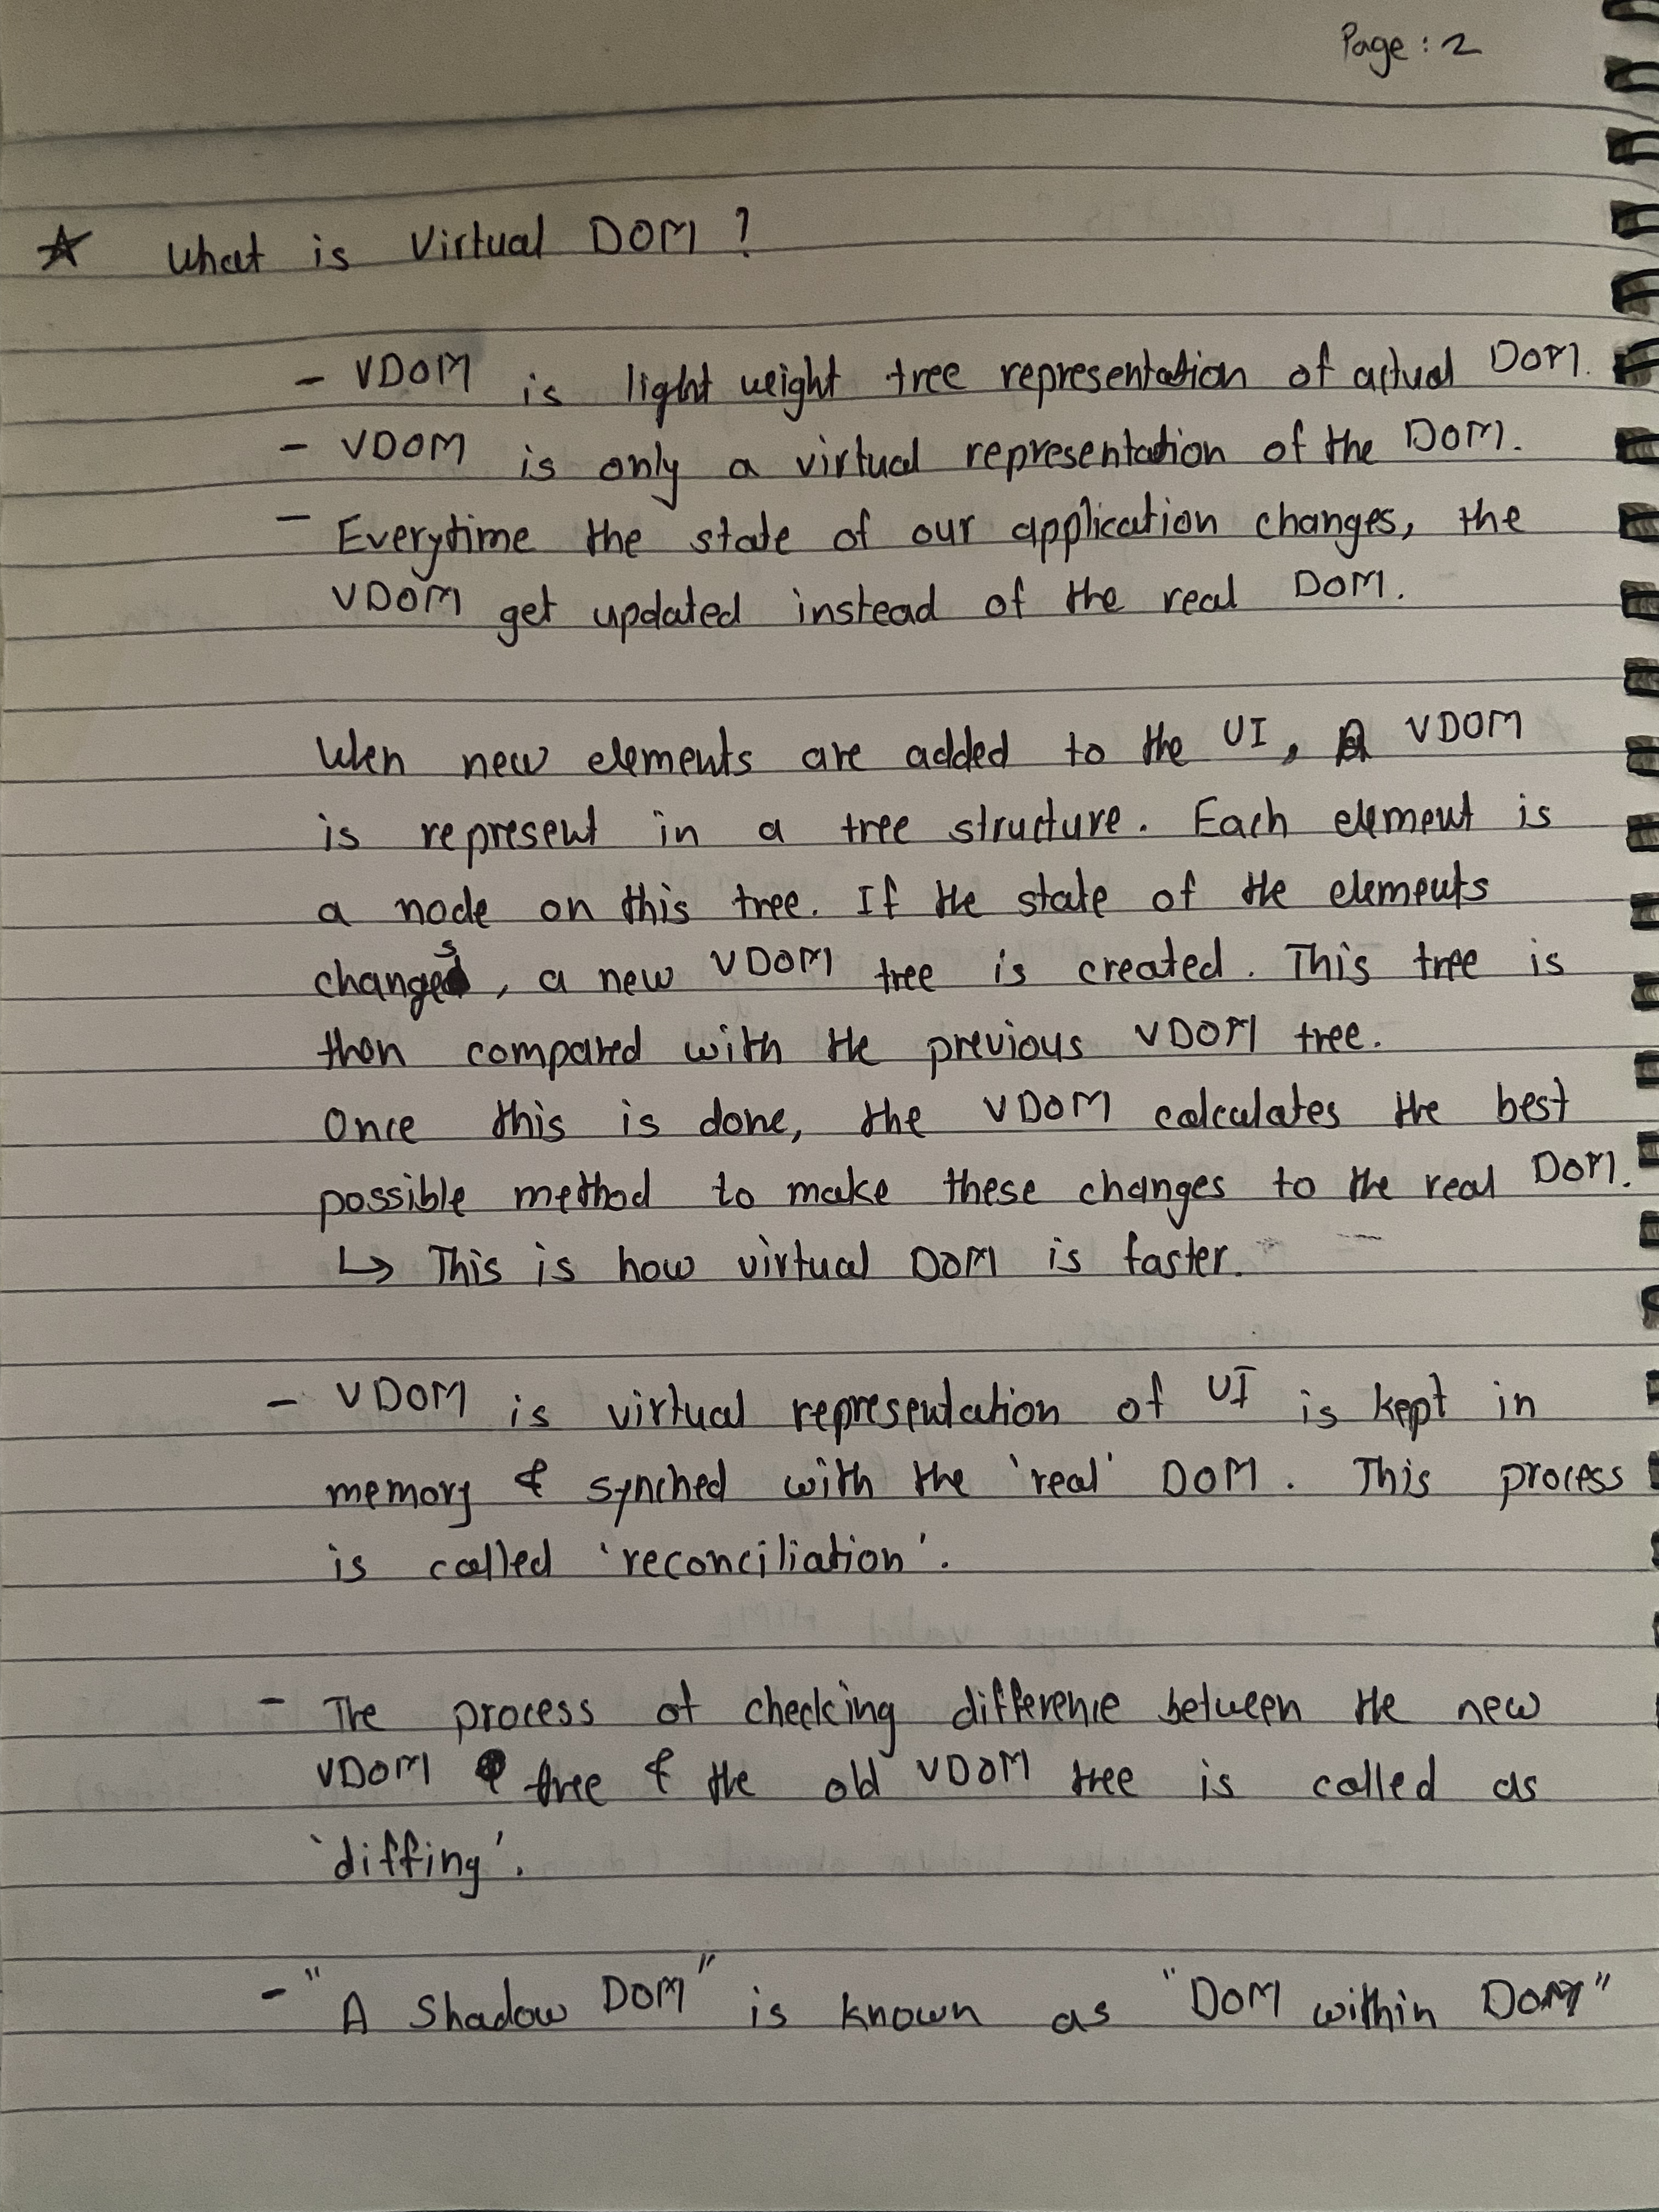 Page : 2
☆ What is Virtual DOM ?
- VDOM is light weight tree representation of actual DOM.
- VDOM is only a virtual representation of the DOM.
- Everytime the state of our application changes, the
VDOM get updated instead of the real DOM.
When new elements are added to the UI, A VDOM
is represent in a tree structure. Each element is
a node on this tree. If the state of the elements
changes, a new VDOM tree is created. This tree is
then compared with the previous VDOM tree.
Once this is done, the VDOM calculates the best
possible method to make these changes to the real DOM.
↳ This is how virtual DOM is faster.
- VDOM is virtual representation of UI is kept in
memory & synched with the 'real' DOM. This process
is called 'reconciliation'.
- The process of checking difference between the new
VDOM tree & the old VDOM tree is called as
'diffing'.
- "A Shadow DOM" is known as "DOM within DOM"